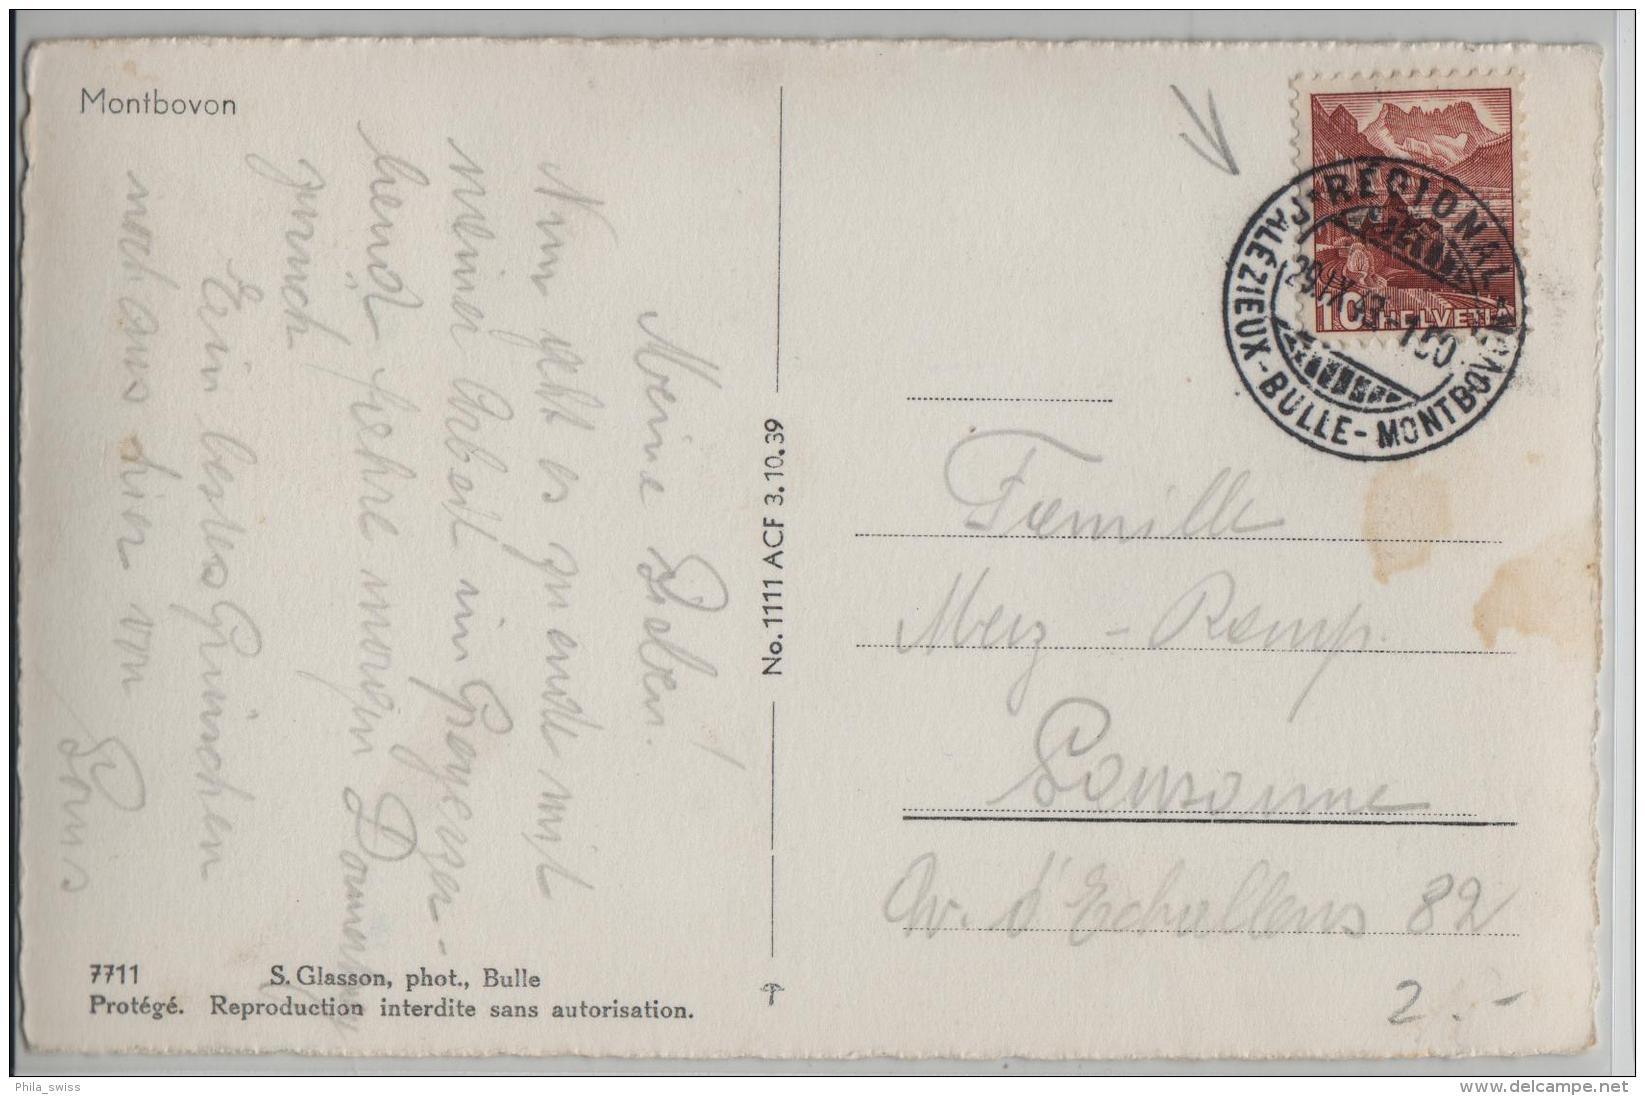 Montbovon
Meine Lieben!
Nun geht es zu ende mit
meiner Arbeit im Greyerzer-
land kehre morgen Donnerstag
zurück
Ein bestes Grüsschen
noch aus hier von
No. 1111 ACF 3.10.39
7711 S. Glasson, phot., Bulle
Protégé. Reproduction interdite sans autorisation.
RÉGIONAL
PALÉZIEUX-BULLE-MONTBOVON
29.IX.43-
10 HELVETIA
Familie
Merz-Remp.
Lausanne
Av. d'Echallens 82
2.-
Phila_swiss
https://www.delcampe.net